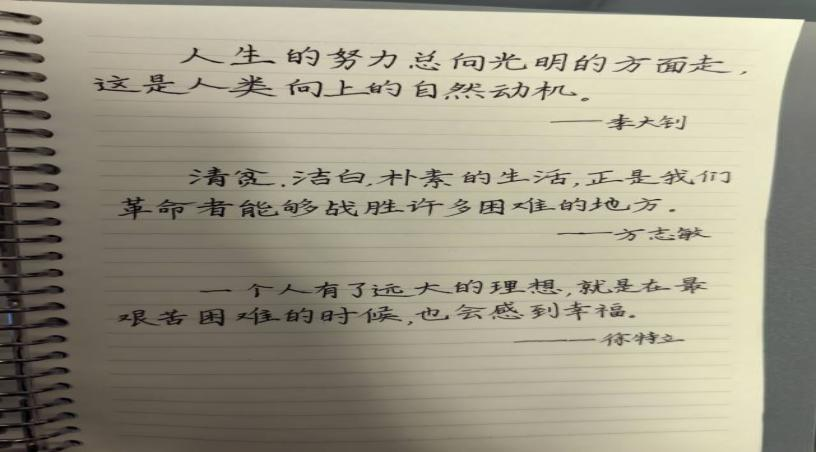 人生的努力总向光明的方面走,
这是人类向上的自然动机。
——李大钊
清贫.洁白,朴素的生活,正是我们
革命者能够战胜许多困难的地方.
——方志敏
一个人有了远大的理想,就是在最
艰苦困难的时候,也会感到幸福。
———徐特立